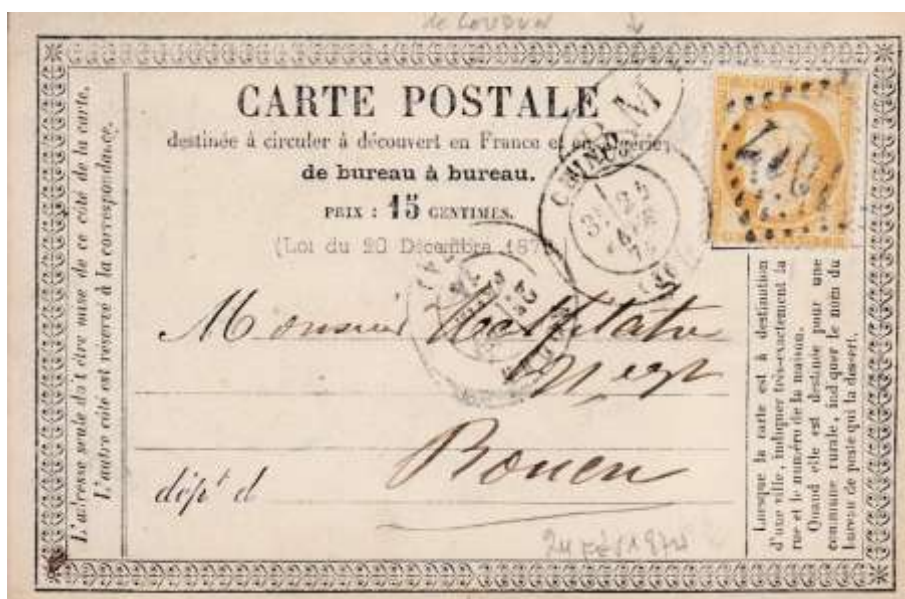 CARTE POSTALE
destinée à circuler à découvert en France et en Algérie,
de bureau à bureau.
PRIX : 15 CENTIMES.
(Loi du 20 Décembre 1872.)
Monsieur
Rouen
dépt d
L'adresse seule doit être mise de ce côté de la carte.
L'autre côté est réservé à la correspondance.
Lorsque la carte est à destination
d'une ville, indiquer très-exactement la
rue et le numéro de la maison.
Quand elle est destinée pour une
commune rurale, indiquer le nom du
bureau de poste qui la dessert.
BM
24
24 Fév 1874